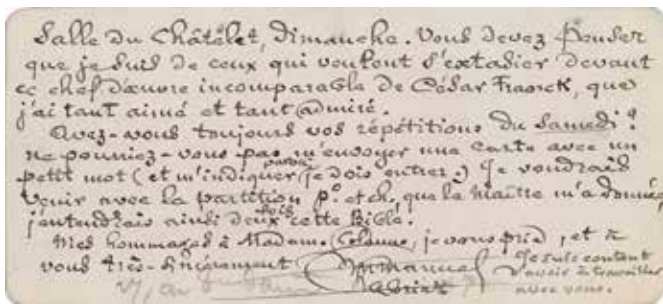 Salle du Châtelet, dimanche. Vous devez penser
que je suis de ceux qui veulent s'extasier devant
ce chef d'œuvre incomparable de César Franck, que
j'ai tant aimé et tant admiré.
Avez-vous toujours vos répétitions du Samedi ?
ne pourriez-vous pas m'envoyer une carte avec un
petit mot (et m'indiquer par où je dois entrer.) Je voudrais
venir avec la partition p° et ch, que le Maître m'a donnée,
j'entendrais ainsi deux fois cette Bible.
Mes hommages à Madame Colonne, je vous prie, et à
vous très-sincèrement Emmanuel
Chabrier
Je suis content
d'avoir à travailler
avec vous.